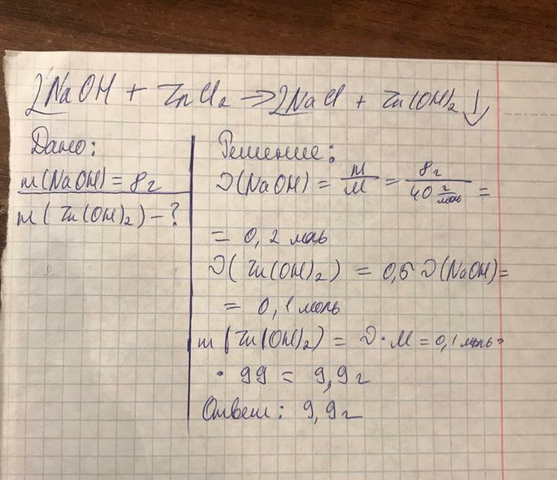 2NaOH + ZnCl₂ → 2NaCl + Zn(OH)₂ ↓
Дано:
m(NaOH) = 8г
m(Zn(OH)₂) - ?
Решение:
ν(NaOH) = m/M = 8г/40 г/моль =
= 0,2 моль
ν(Zn(OH)₂) = 0,5 ν(NaOH) =
= 0,1 моль
m(Zn(OH)₂) = ν · M = 0,1 моль ·
· 99 = 9,9г
Ответ: 9,9г